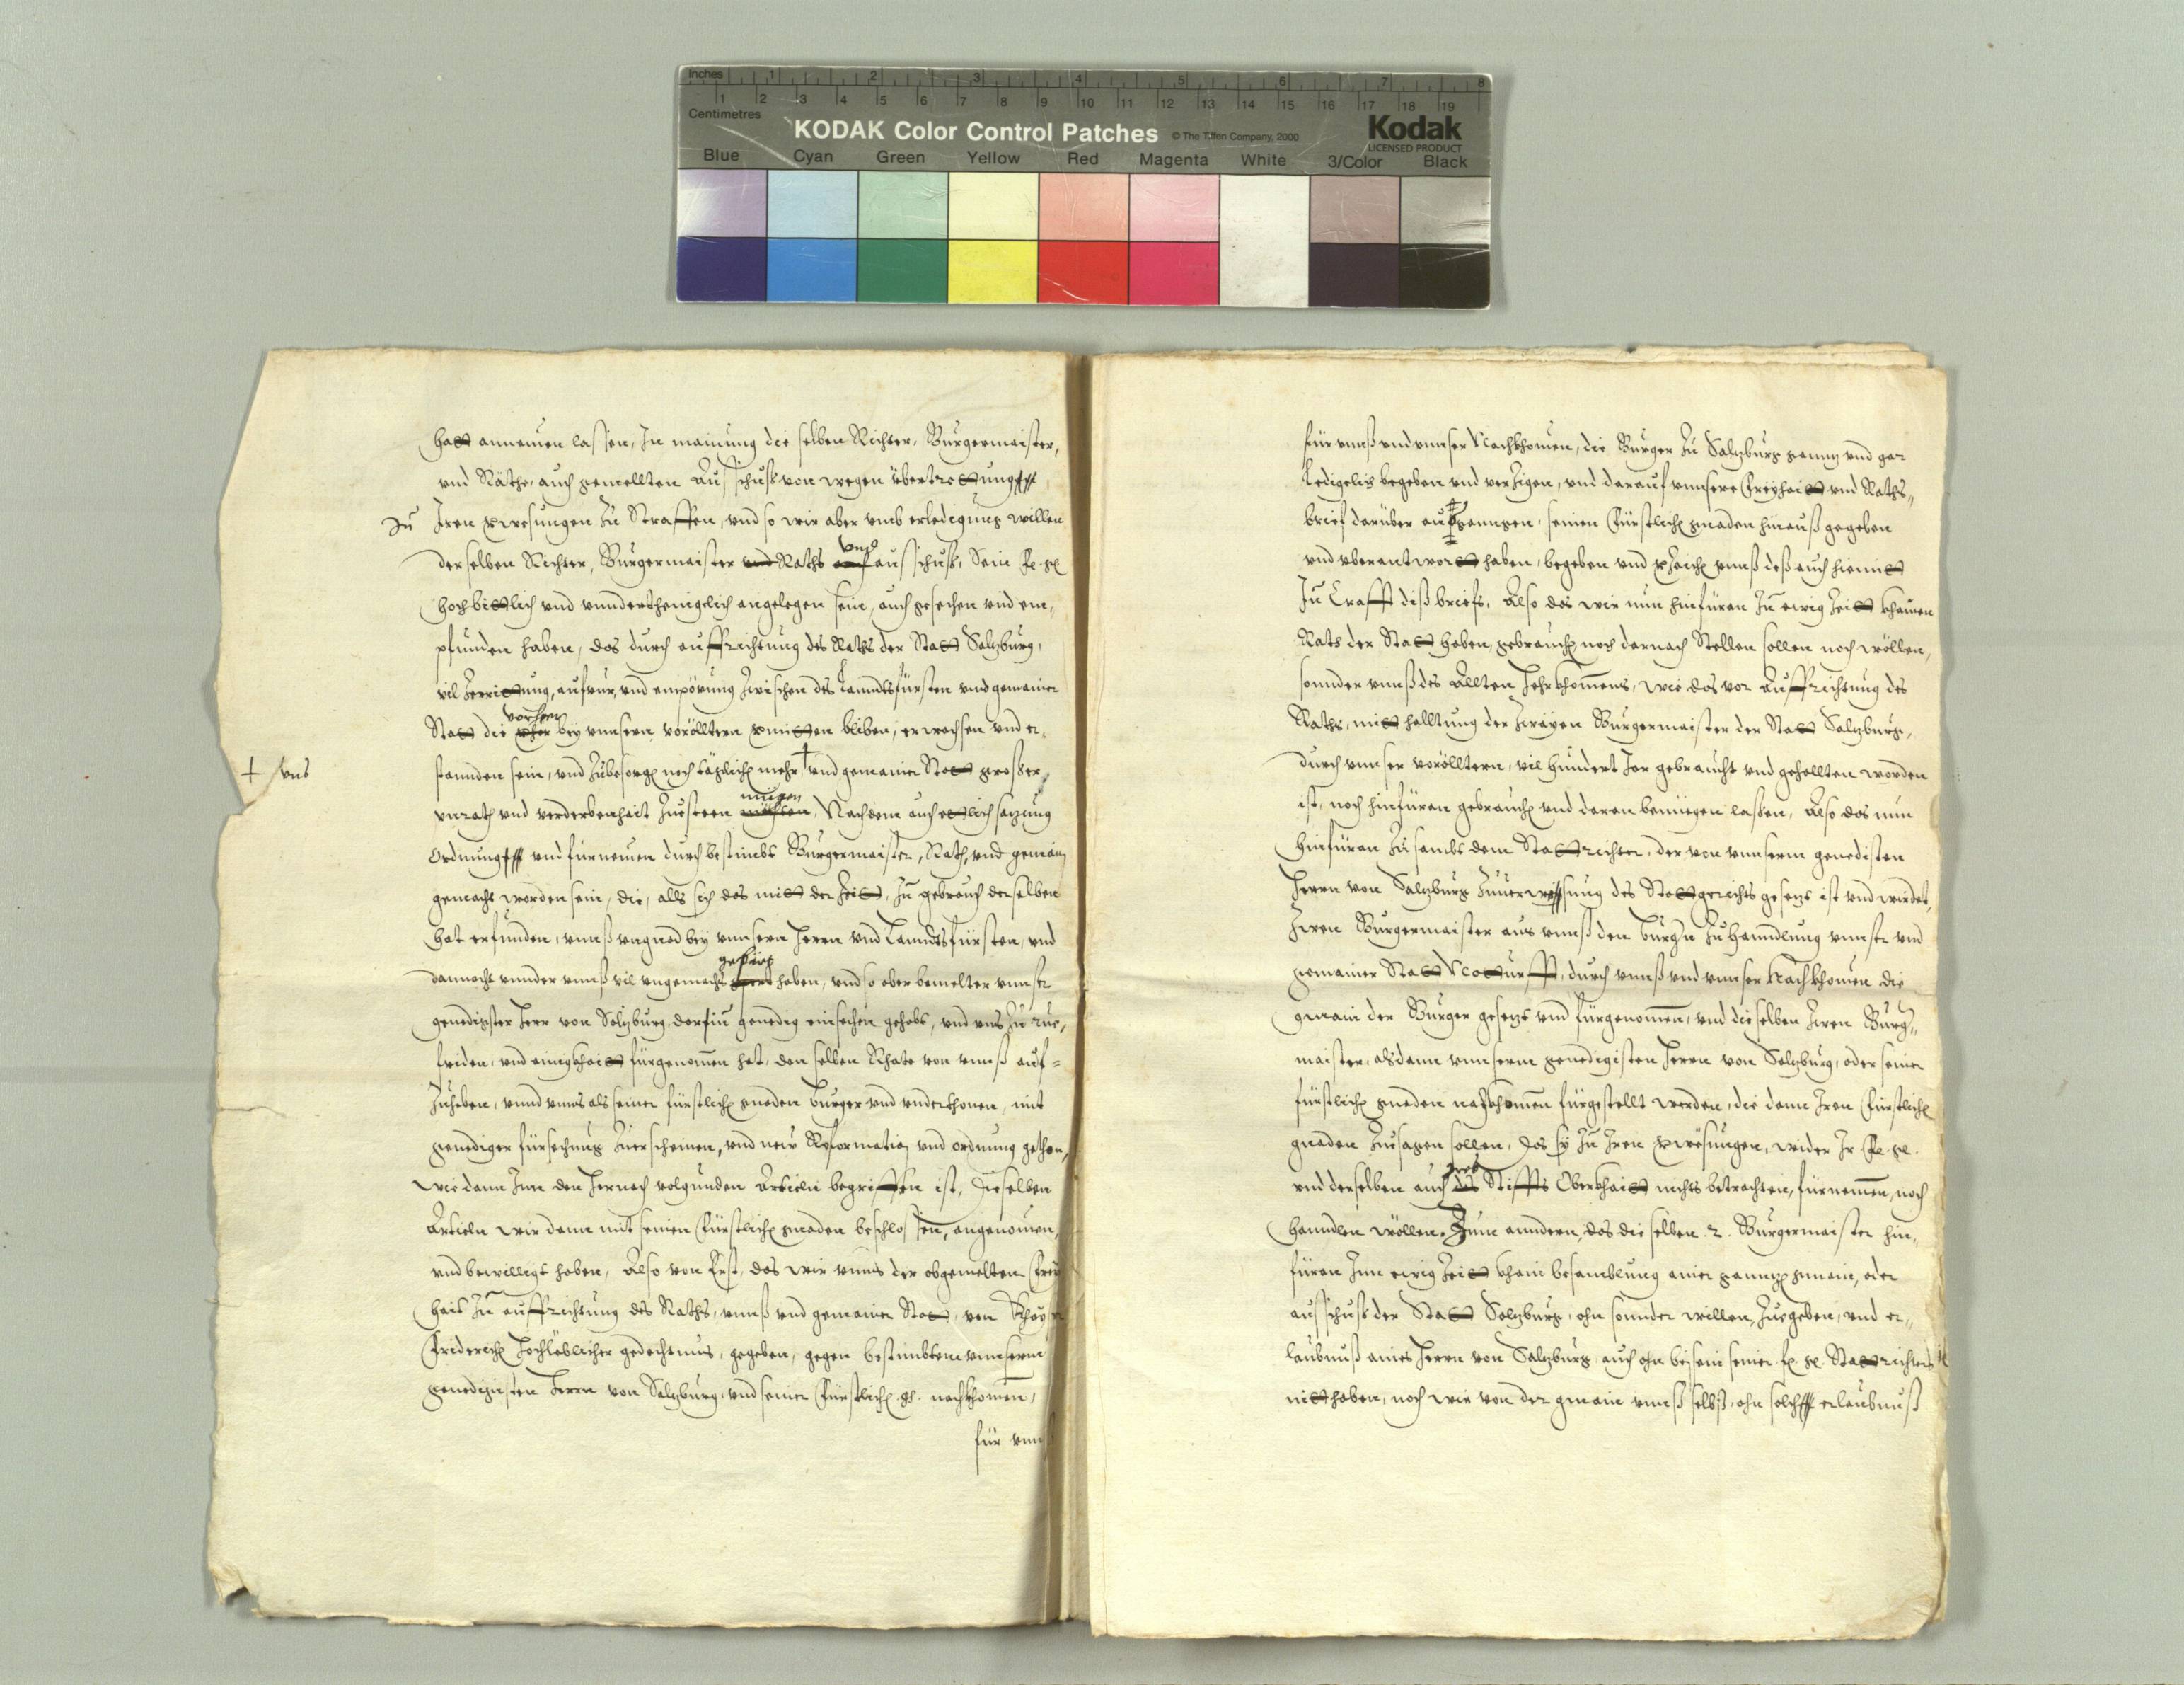 Inches 1 2 3 4 5 6 7 8
1 2 3 4 5 6 7 8 9 10 11 12 13 14 15 16 17 18 19
Centimetres
KODAK Color Control Patches © The Tiffen Company, 2000 Kodak
LICENSED PRODUCT
Blue Cyan Green Yellow Red Magenta White 3/Color Black
hatt annemen lassen, In mainung die selben Richter, Burgermaister,
vnd Räthe, auch gemellten Ausschuss von wegen übertrettung
zu Iren zu Straffen, vnd so wir aber vmb erledigung willen
vnd
derselben Richter, Burgermaister vnd Raths ausschuss, Sein
hochbittlich vnd vnnderthenigclich angelegen sein, auch gesechen vnd em,
pfunden haben, das durch auffrichtung des Raths der Statt Salzburg,
vil Zerrittung, aufrur, vnd empörung zwischen des Lanndtsfürsten vnd gemainer
vorhin
Statt die bey vnnsern vorölltern vermitten bliben, erwachsen vnd er,
stannden sein, vnd zubesorgen noch täglich mehr † vnd gemainer Statt grosser
† vns
mugen
vnrath vnd verderbenhait zusteen möchten, Nachdem auch ettlich sazung
Ordnung vnd fürnemen durch bestimbt Burgermaister, Rath, vnd gemain
gemacht worden sein, die, alls sich das mitt der Zeitt, zu gebrauch derselben
hat erfunden, vnnß vngnad bey vnnsern Herrn vnd Lanndtsfürsten, vnd
dannocht vnnder vnnß vil vngemachs haben, vnd so aber bemelter vnnser
genedigster Herr von Salzburg, darein genedig einsechen gehabt, vnd vns zu rue,
friden, vnd ainigkhait fürgenomen hat, den selben Rhate von vnnß auf=
zuheben, vnnd vnns als seiner fürstlichen gnaden burger vnd vnderthonen, mit
genediger fürsechung zuerscheinen, vnd new Reformation vnd ordnung gethon,
wie dann Inn den hernach volgunden Articln begriffen ist, dieselben
Articln wir dann mit seinen fürstlichen gnaden beschlossen, angenomen,
vnd bewilligt haben, Also von Erst, das wir vnns der obgemelten Frey
hait zu auffrichtung des Raths, vnnß vnd gemainer Statt, von Khayser
Friderichen hochlöblicher gedechtnus, gegeben, gegen bestimbtem vnnserm
genedigisten Herrn von Salzburg, vnd seiner Fürstlichen g. nachkhomen,
für vnnß
für vnnß vnd vnnser Nachkhomen, die Burger zu Salzburg ganntz vnd gar
Ledigclich begeben vnd verzigen, vnd darauf vnnsere Freyhait vnd Raths,,
brief darüber außganngen, seinen Fürstlichen gnaden hinauß gegeben
vnd vberantwortt haben, begeben vnd verzeichen vnnß deß auch hiemit
In Crafft diß briefs, Also das wir nun hinfüran zu ewig Zeitt khainen
Rats der Statt haben, gebrauchen noch darnach Stellen sollen noch wöllen,
sonnder vnnß des Allten herkhomens, wie das vor Auffrichtung des
Raths, mit halltung der zwayen Burgermaister der Statt Salzburg,
durch vnnser vorölltern, vil hundert Jar gebraucht vnd gehallten worden
ist, noch hinfüran gebrauchen vnd daran benüegen lassen, Also das nun
hinfüran zusambt dem Stattrichter, der von vnnserm genedisten
Herrn von Salzburg zuuerwessung des Stattgerichts gesetzt ist vnd wirdet,
Zwen Burgermaister aus vnnß den burgern zu Hanndlung vnnser vnd
gemainer Statt Notturfft, durch vnnß vnd vnnser Nachkhomen die
gmain der Burger gesetzt vnd fürgenomen, vnd dieselben zwen Burger,,
maister, alsdann vnnserm genedigisten Herrn von Salzburg, oder seiner
fürstlichen gnaden nachkhomen fürgestellt werden, die dann Iren fürstlichen
gnaden zusagen sollen, das sy zu Iren, wider Ir
vnd derselben auch des Stiffts Oberkhait nichts betrachten, fürnemen, noch
hanndlen wöllen. Zum anndern, das die selben .2. Burgermaister hin,,
füran Inn ewig Zeitt khain besamblung ainer ganntzen gmain, oder
ausschuß der Statt Salzburg, ohn sonnder willen, zuegeben, vnd er,,
laubnuß aines Herrn von Salzburg, auch ohn beisein seiner Stattrichters
nit haben, noch wir von der gmain vnnß selbß, ohn solch erlaubnuß